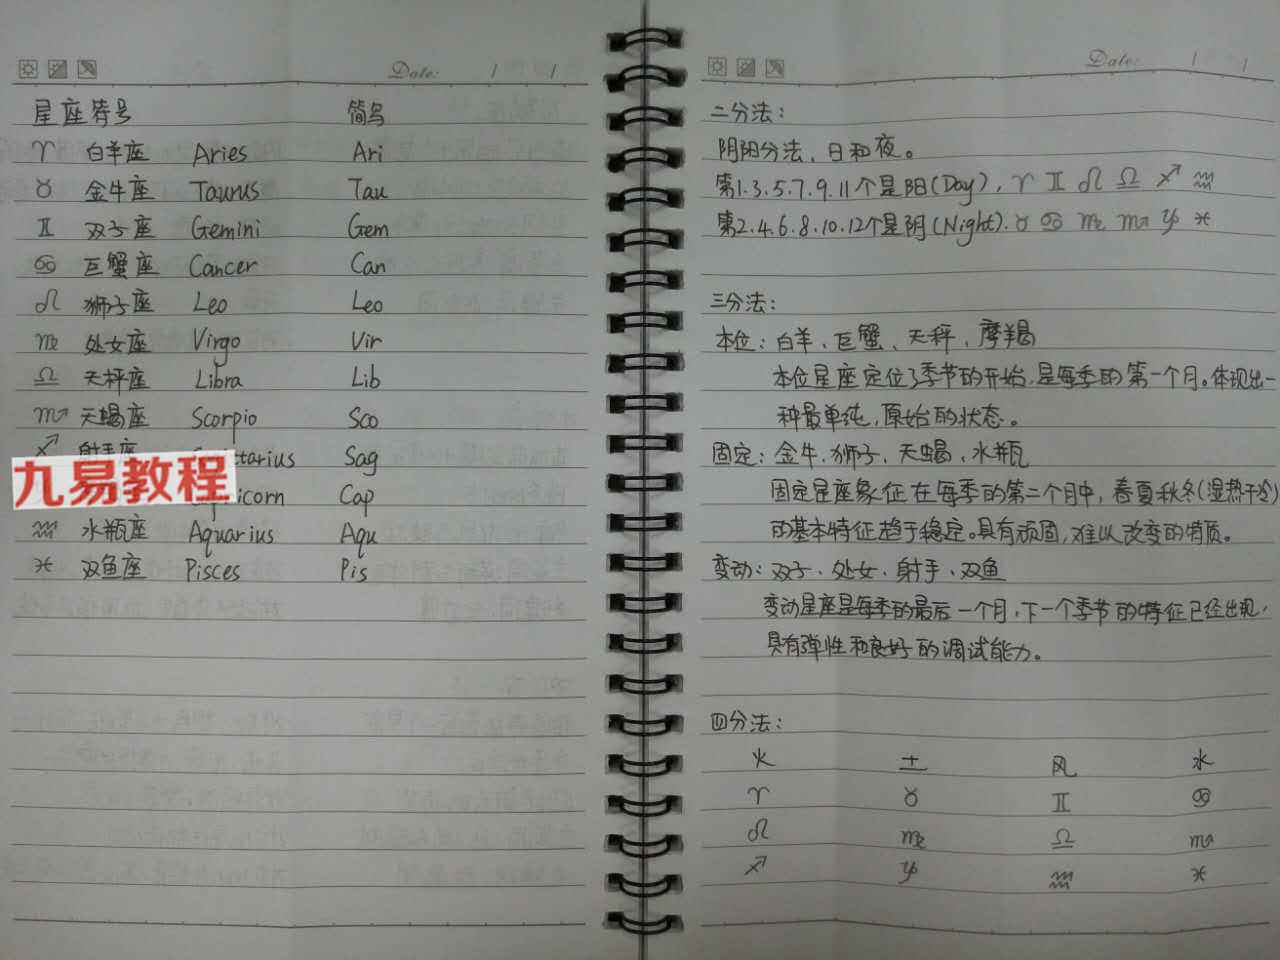 Date: / /
星座符号 简写
♈ 白羊座 Aries Ari
♉ 金牛座 Taurus Tau
♊ 双子座 Gemini Gem
♋ 巨蟹座 Cancer Can
♌ 狮子座 Leo Leo
♍ 处女座 Virgo Vir
♎ 天秤座 Libra Lib
♏ 天蝎座 Scorpio Sco
♐ 射手座 ttarius Sag
九易教程
icorn Cap
♒ 水瓶座 Aquarius Aqu
♓ 双鱼座 Pisces Pis
Date: / /
二分法：
阴阳分法、日和夜。
第1.3.5.7.9.11个是阳(Day)，♈ ♊ ♌ ♎ ♐ ♒
第2.4.6.8.10.12个是阴(Night).♉ ♋ ♍ ♏ ♑ ♓
三分法：
本位：白羊、巨蟹、天秤、摩羯
本位星座定位了季节的开始，是每季的第一个月。体现出一
种最单纯，原始的状态。
固定：金牛、狮子、天蝎、水瓶
固定星座象征在每季的第二个月中，春夏秋冬(湿热干冷)
的基本特征趋于稳定。具有顽固，难以改变的特质。
变动：双子、处女、射手、双鱼
变动星座是每季的最后一个月，下一个季节的特征已经出现，
具有弹性和良好的调试能力。
四分法：
火 土 风 水
♈ ♉ ♊ ♋
♌ ♍ ♎ ♏
♐ ♑ ♒ ♓